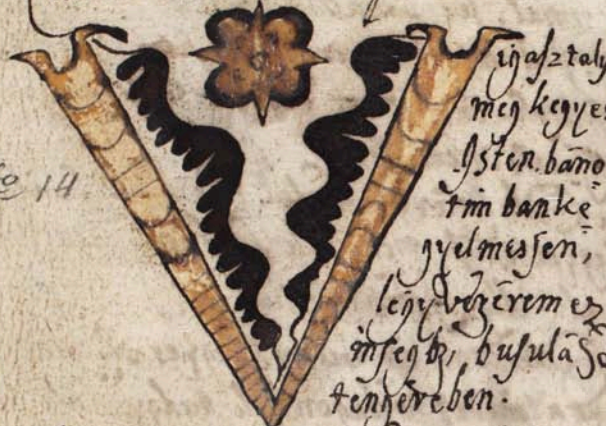 V
igasztaly
meg kegyes
Isten, báno
tim banke
gyelmessen,
légy vezérem ez
insegbz, busulaso
tengéreben.
14